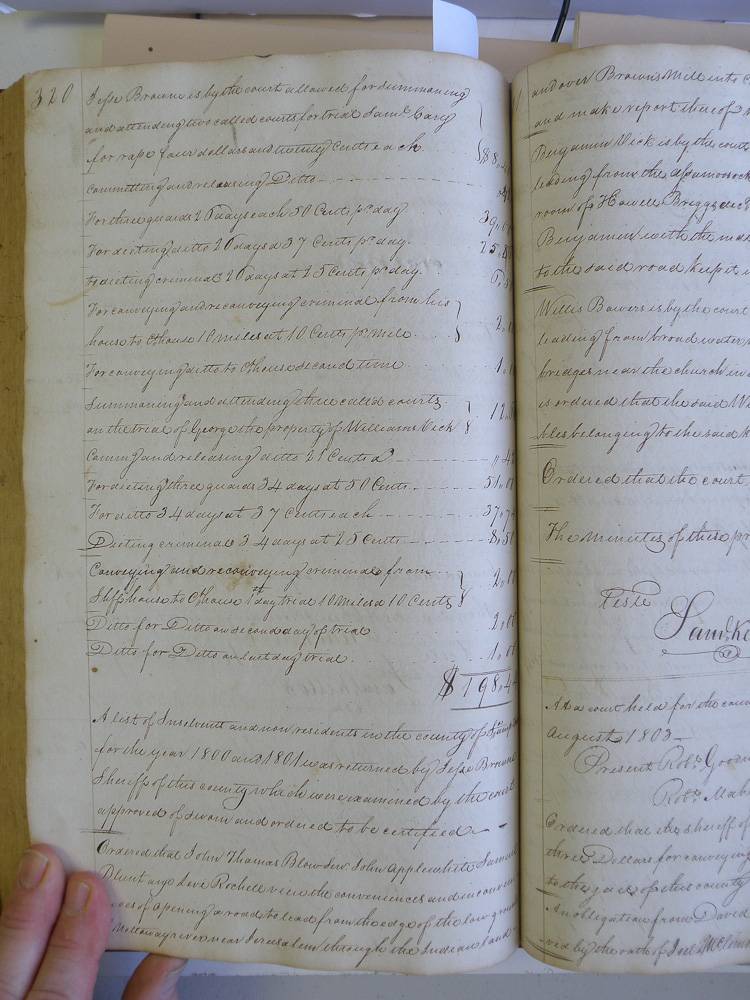 320
Jesse Browne is by the court allowed for summoning
and attending two called courts for trial Saml. Cary
for rape four dollars and twenty Cents each
Committing and releasing Ditto
For three guards 26 days each 50 Cents pr. day 39,0
For dieting ditto 26 days a 37 Cents pr. day.
to dieting criminal 26 days at 25 Cents pr. day. 6,5
For conveying and reconveying criminal from his
house to Ct. house 10 miles at 10 Cents pr. Mile
For conveying ditto to Ct. house second time
Summoning and attending three called courts
on the trial of George the property of William Vick
Coming and releasing ditto 21 Cents a
For dieting three guards 34 days at 50 Cents 51,00
For ditto 34 days at 37 Cents each 37,7
Dieting criminal 34 days at 25 Cents 8,50
Conveying and reconveying criminal from
house to Ct. house 1st day trial 10 Miles a 10 Cents 2,00
Ditto for Ditto on second day of trial 2,00
Ditto for Ditto on last day trial 1,00
$ 198,4
A list of Insolvents and non residents in the county of
for the year 1800 and 1801 was returned by Jesse Browne
Sheriff of this county which were examined by the court
approved of sworn and ordered to be certified
Ordered that John Thomas Blow Senr John Applewhite Samuel
Blunt and Love Rochell view the conveniences and inconven
iences of opening a road to lead from the edge of the low grou
Nottoway river near Jerusalem through the Indian land
and over Browns Mill into
and make report thereof
Benjamin Vick is by the court
leading from the
room of Howell Briggs
Benjamin with the
to the said road keep it
Willis Bowers is by the court
leading from broad water
bridges near the church in
is ordered that the said
bles belonging to the said
Ordered that the court
The minutes of these pr
Teste
Saml. Ke
At a court held for the coun
August 1803
Present Robt. Goodw
Robt. Mab
Ordered that the sheriff of
three Dollars for conveying
to the jail of this county
An obligation from David
ved by the oath of